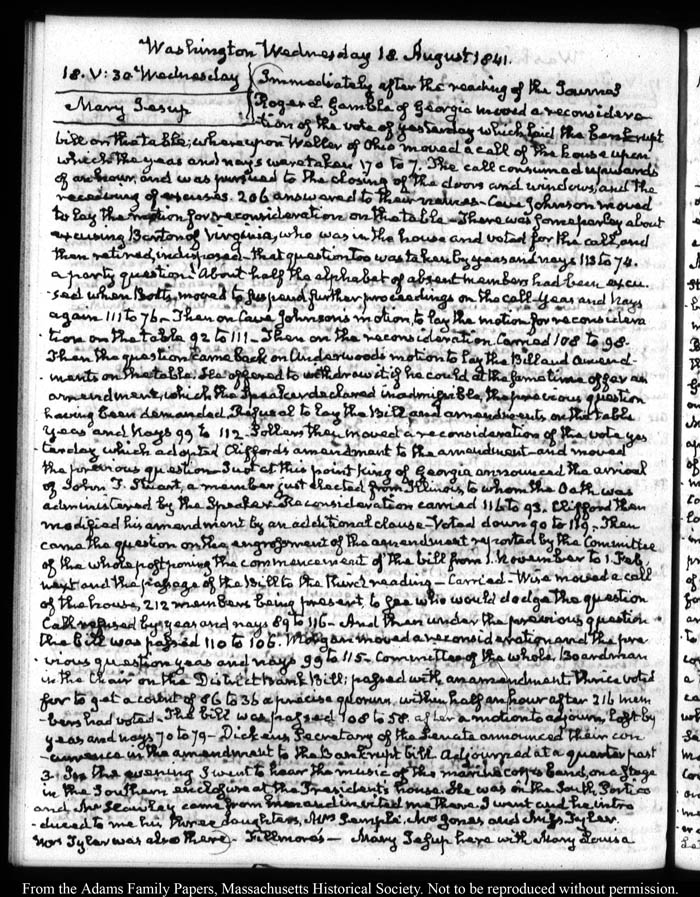 Washington Wednesday 18 August 1841.
18. V: 30. Wednesday
Mary Jesup
Immediately after the reading of the Journal
Roger L. Gamble of Georgia moved a reconsidera
tion of the vote of yesterday which laid the bankrupt
bill on the table; whereupon Weller of Ohio moved a call of the house upon
which the yeas and nays were taken 170 to 7. The call consumed upwards
of an hour, and was pursued to the closing of the doors and windows, and the
receiving of excuses. 206 answered to their names - Cave Johnson moved
to lay the motion for reconsideration on the table - There was some parley about
excusing Barton of Virginia, who was in the house and voted for the call, and
then retired, indisposed - that question too was taken by yeas and nays 113 to 74.
a party question. About half the alphabet of absent members had been excu
sed when Botts, moved to suspend further proceedings on the call - Yeas and Nays
again 111 to 76 - Then on Cave Johnson's motion, to lay the motion for reconsidera
tion on the table 92 to 111 - Then on the reconsideration. Carried 108 to 98 -
Then the question came back on Underwood's motion to lay the Bill and amend
ments on the table. He offered to withdraw it if he could at the same time offer an
amendment, which the Speaker declared inadmissible, the previous question
having been demanded. Refusal to lay the Bill, and amendments on the table
yeas and Nays 99 to 112 - then moved a reconsideration of the vote yes
terday which adopted Clifford's amendment to the amendment - and moved
the previous question - Just at this point King of Georgia announced the arrival
of John T. Stuart, a member just elected from Illinois, to whom the Oath was
administered by the Speaker - Reconsideration carried 116 to 93. Clifford then
modified his amendment by an additional clause - Voted down 90 to 119 - Then
came the question on the engrossment of the amendment reported by the Committee
of the whole postponing the commencement of the bill from 1. November to 1. Feb
next and the passage of the Bill to the third reading - Carried - Wise moved a call
of the house, 212 members being present, to see who would dodge the question
Call refused by yeas and nays 89 to 116 - And then under the previous question
the bill was passed 110 to 106. Morgan moved a reconsideration and the pre
vious question yeas and nays 99 to 115 - Committee of the whole, Boardman
in the chair on the District Bank Bill; passed with an amendment thrice voted
for to get a count of 86 to 36 a precise quorum, within half an hour after 216 mem
bers had voted - The bill was passed 108 to 58. after a motion to adjourn, lost by
yeas and nays 70 to 79 - Dickins Secretary of the Senate announced their con
currence in the amendment to the Bankrupt bill. Adjourned at a quarter past
3. In the evening I went to hear the music of the marine corps band, on a stage
in the Southern enclosure at the President's house. He was on the South Portico
and Mr came from him and invited me there. I went and he intro
duced to me his three daughters, Mrs Semple, Mrs Jones and Miss Tyler.
Mrs Tyler was also there - Fillmore's - Mary Jesup here with Mary Louisa
From the Adams Family Papers, Massachusetts Historical Society. Not to be reproduced without permission.